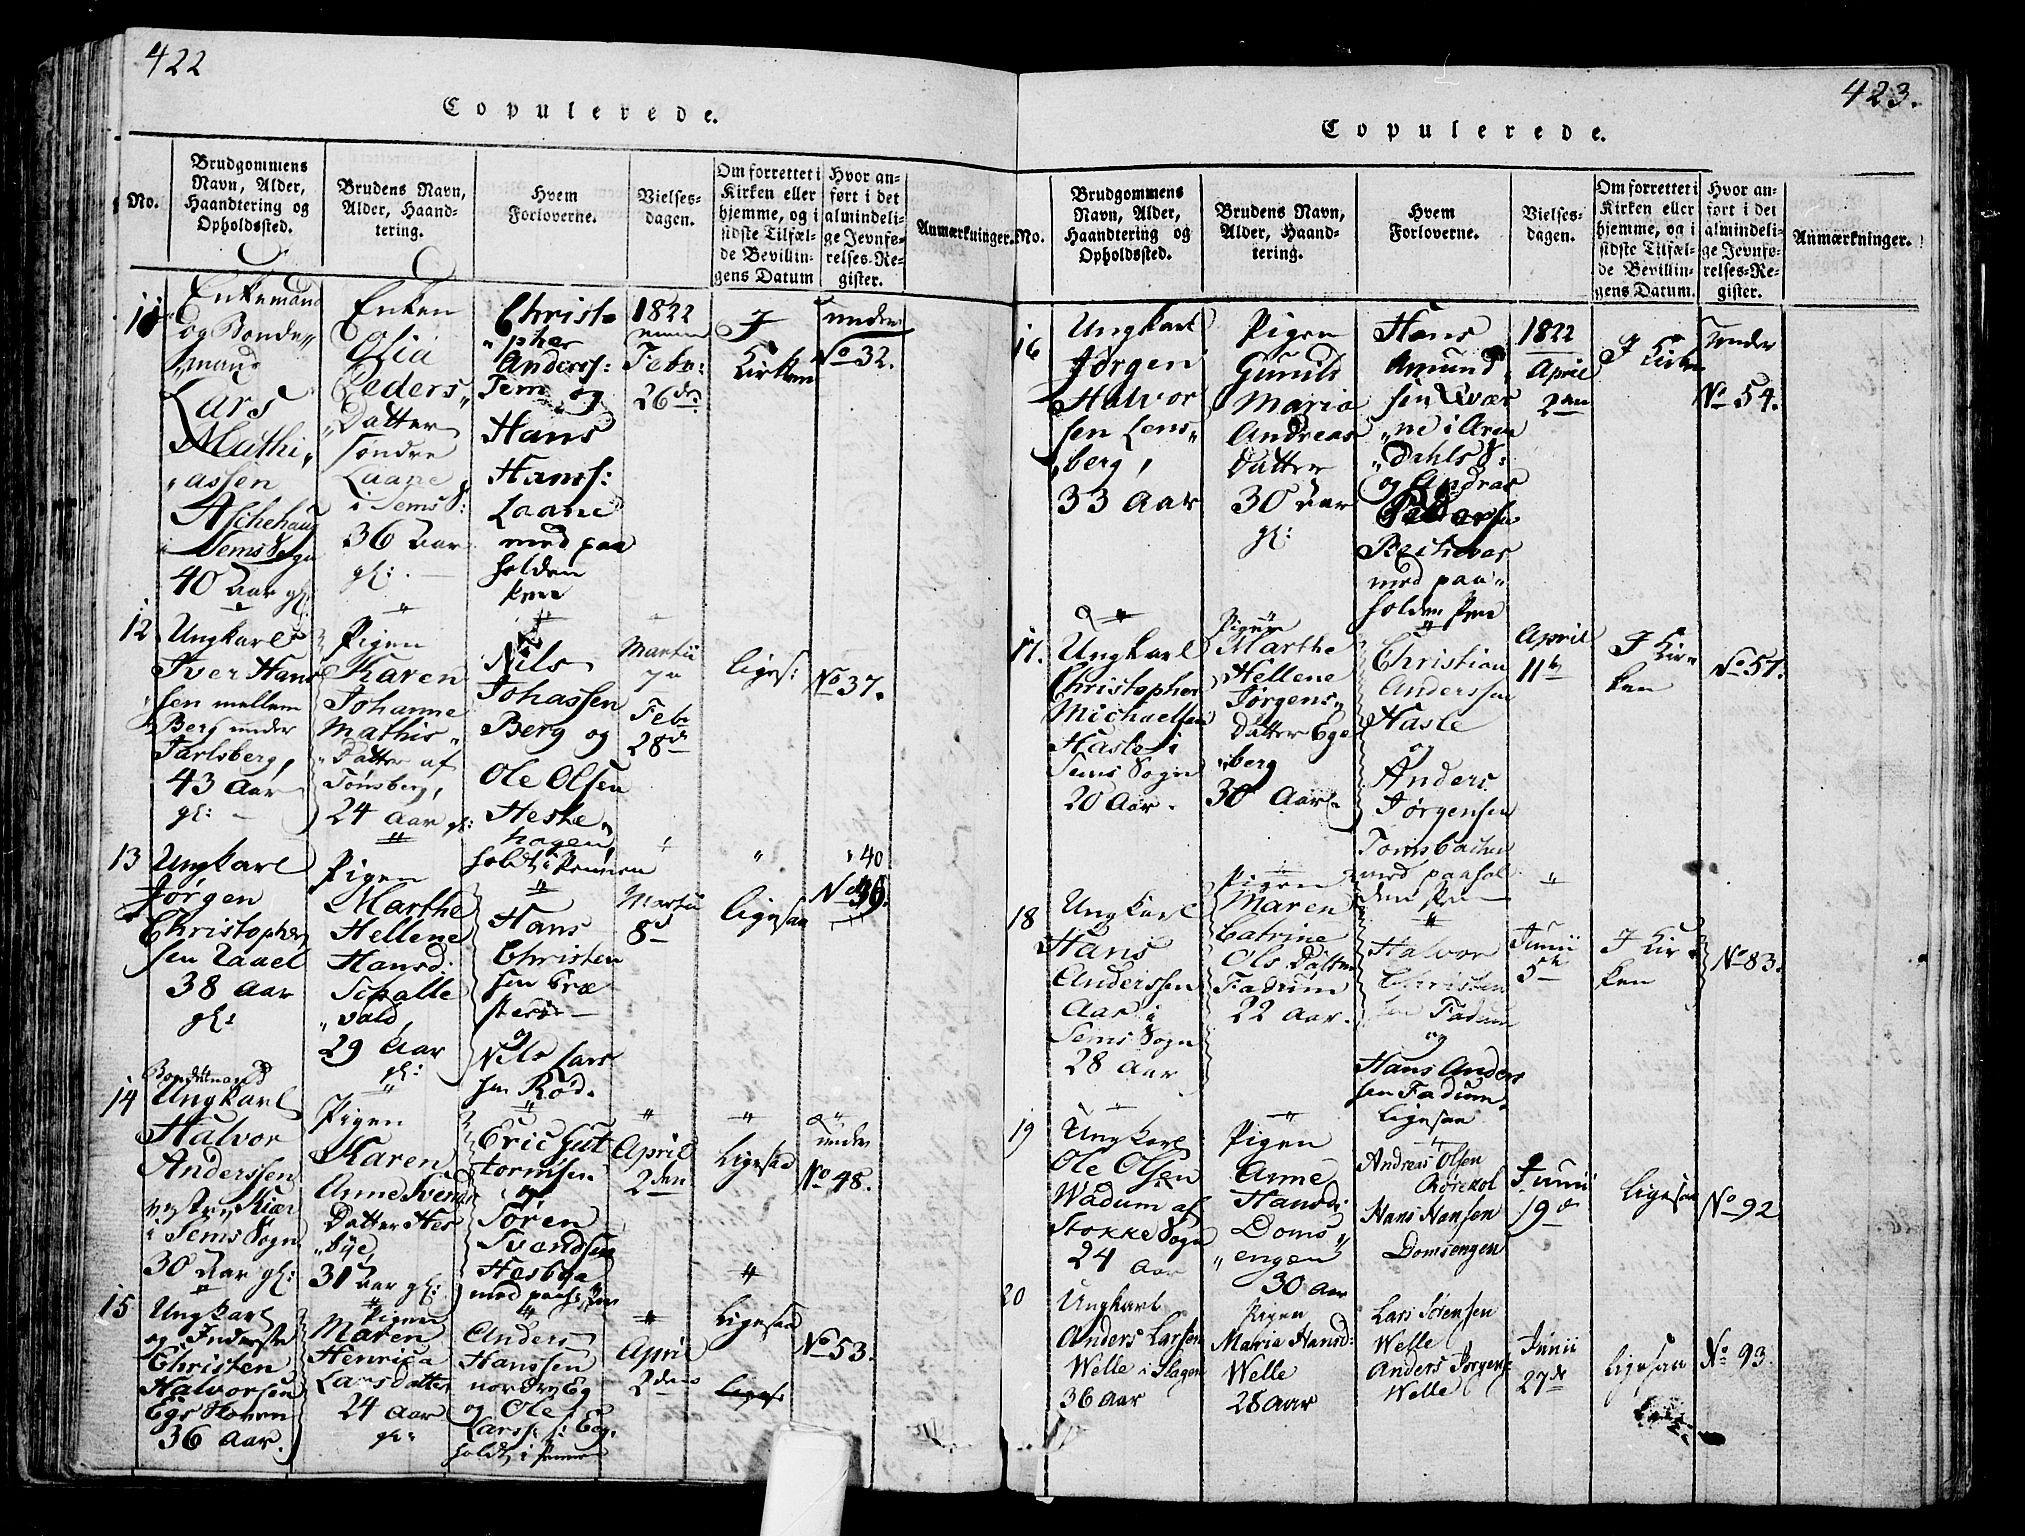 422
Copulerede.
No.
Brudgommens
Navn, Alder,
Haandtering og
Opholdssted.
Brudens Navn,
Alder, Haand-
tering.
Hvem
Forloverne.
Vielses-
dagen.
Om forrettet i
Kirken eller
hjemme, og i
sidste Tilfæl-
de Bevillin-
gens Datum
Hvor an-
ført i det
almindeli-
ge Jevnfø-
relses-Re-
gister.
Anmærkninger.
11
Enkemand
og Bonde„
„mand
Lars
Mathi„
„assen
Aschehaug
i Sems Sogn
40 Aar gl:
Enken
Olia
Peders„
„Datter
Søndre
Laane
i Sems S:
36 Aar
gl:
Christo
„pher
Anderss:
Tem og
Hans
Hanss:
Laane
med paa
holden
Pen
1822
Febr:
26de
I
Kirken
under
No 32.
12
Ungkarl
Iver Hans
sen mellem
Berg under
Jarlsberg,
43 Aar
gl:
Pigen
Karen
Johanne
Mathis„
„Datter af
Tønsberg,
24 Aar gl:
Nils
Johassen
Berg og
Ole Olsen
Heske„
hagen
holdt i Pennen
Martii
7de
Febr
28de
liges:
No 37.
13
Ungkarl
Jørgen
Christopher
sen
38 Aar
gl:
Pigen
Marthe
Hellene
Hansd:
Schalle
„vald,
29 Aar
gl:
Hans
Christen
sen
og
Nils Lars
sen Rød.
Martii
8de
ligesaa
40
No
14
Bondemand
Ungkarl
Halvor
Anderssen
Kiær
i Sems Sogn
30 Aar gl:
Pigen
Karen
Anne Svends
Datter Hes
„bye,
31 Aar gl:
Eric Gut
tormsen
og
Søren
Svendsen
Hesbye
med paah: Pen
April
2den
Ligesaa
under
No 48.
15
Ungkarl
og Inderste
Christen
Halvorsen
Egs Hoven
36 Aar.
Pigen
Maren
Henrica
Larsdatter
24 Aar
gl:
Anders
Hanssen
nordry Eg
og Ole
Larss: s: Eg.
holdt i Pennen
April
2den
Ligesaa
liges:
No 53.
423.
Copulerede.
No.
Brudgommens
Navn, Alder,
Haandtering og
Opholdssted.
Brudens Navn,
Alder, Haand-
tering.
Hvem
Forloverne.
Vielses-
dagen.
Om forrettet i
Kirken eller
hjemme, og i
sidste Tilfæl-
de Bevillin-
gens Datum.
Hvor an-
ført i det
almindeli-
ge Jevnfø-
relses-Re-
gister.
Anmærkninger.
16
Ungkarl
Jørgen
Halvor
sen Lens„
„berg,
33 Aar
Pigen
Gunild
Maria
Andreas
Datter
30 Aar
gl:
Hans
Amund„
sen Qvær
„ne i Aren
„Dahls S:
og Andreas
Pedersen
med paa„
holden Pen
1822
April
2den
I Kirken
under
No 54.
17.
Ungkarl
Christopher
Michaelsen
Hasle i
Sems Sogn
20 Aar.
Pigen
Marthe
Hellene
Jørgens„
Datter Ege
„berg
30 Aar
Christian
Anderssen
Hasle
og
Anders
Jørgensen
Tomsbachen
med paahol
den Pen
April
11te
I Kir„
ken
No 57.
18
Ungkarl
Hans
Anderssen
Aar i
Sems Sogn
28 Aar
Pigen
Maren
Catrine
Ols Datter
Fadum
22 Aar.
Halvor
Christen
sen Fadum
og
Hans Anders
sen Fadum.
Ligesaa
Junii
5te
I Kir„
ken
No 83.
19
Ungkarl
Ole Olsen
Wadum af
Stokke Sogn
24 Aar
Pigen
Anne
Hansd:
Doms„
„engen
30 Aar
Andreas Olsen
Hans Hansen
Domsengen
Junii
19de
Ligesaa
No 92
20
Ungkarl
Anders Larsen
Welle i Slagen
36 Aar
Pigen
Maria Hansd:
Welle
28 Aar
Lars Sørensen
Welle
Anders Jørgens:
Welle
Junii
27de
Ligesaa
No 93.